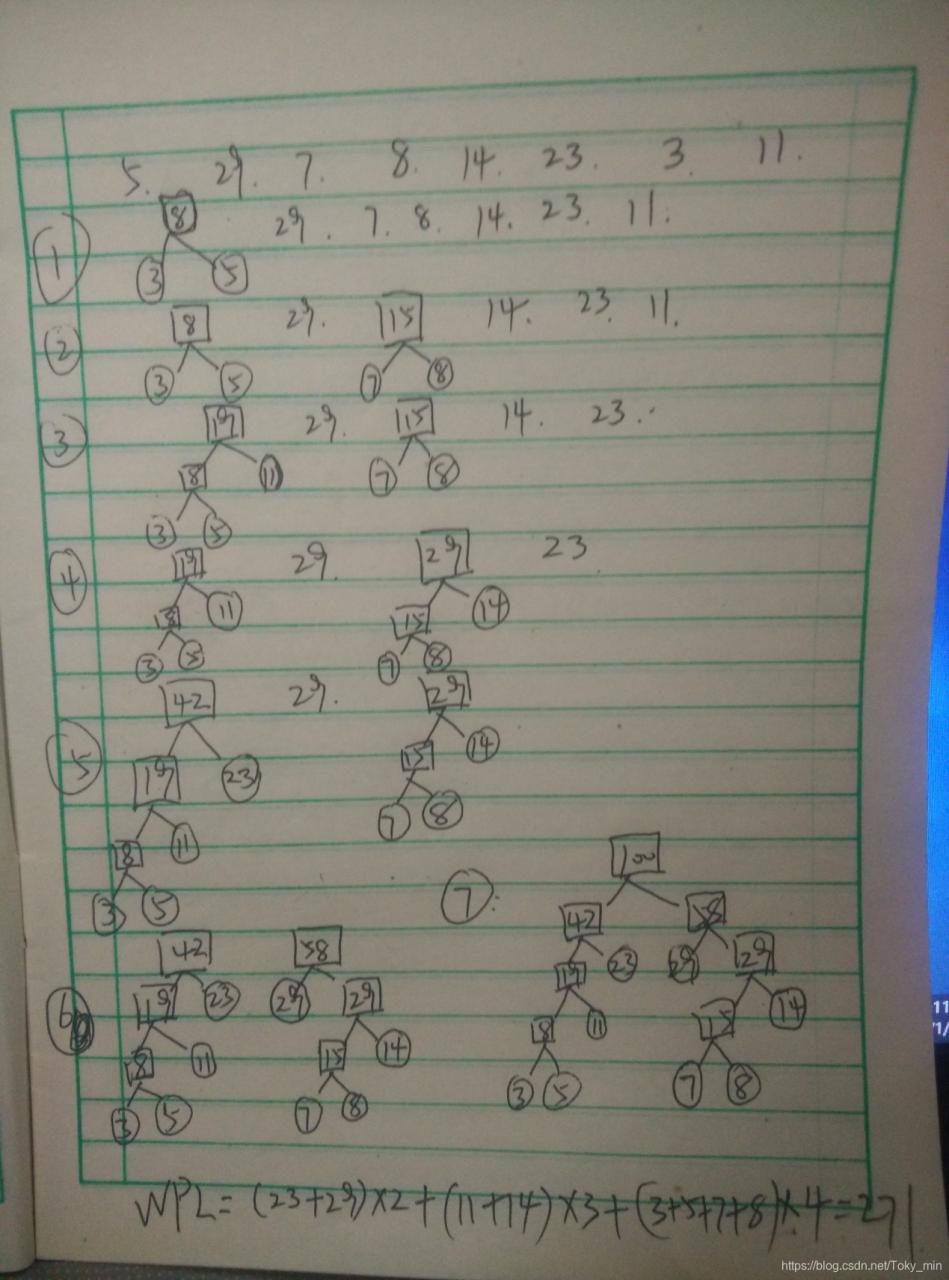 5. 29. 7. 8. 14. 23. 3. 11.
① 8 29. 7. 8. 14. 23. 11.
3 5
② 8 29. 15 14. 23. 11.
3 5 7 8
③ 19 29. 15 14. 23.
8 11 7 8
3 5
④ 19 29. 29 23
8 11 15 14
3 5 7 8
⑤ 42 29. 29
19 23 15 14
8 11 7 8
3 5
⑥ 42 58
19 23 29 29
8 11 15 14
3 5 7 8
⑦:
100
42 58
19 23 29 29
8 11 15 14
3 5 7 8
WPL= (23+29)×2+(11+14)×3+(3+5+7+8)×4=271
https://blog.csdn.net/Toky_min